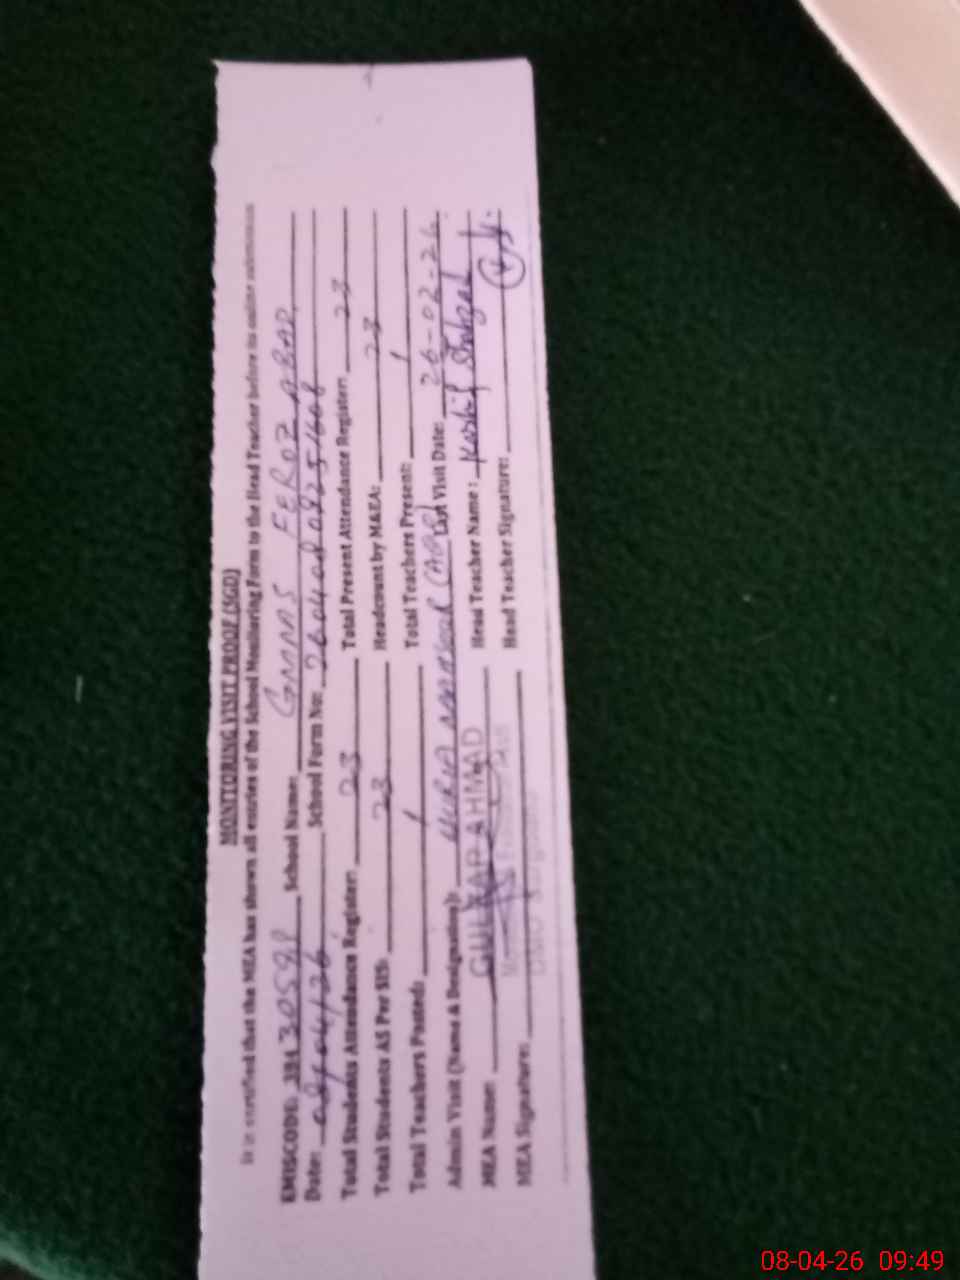 MONITORING VISIT PROOF (SGD)
It is certified that the MEA has shown all entries of the School Monitoring Form to the Head Teacher before its online submission
EMISCODE: 384 30598 School Name: GMMS FEROZ ABAD
Date: 08/04/26 School Form No: 26040808251608
Total Students Attendance Register: 23 Total Present Attendance Register: 23
Total Students AS Per SIS: 23 Headcount by M&EA: 23
Total Teachers Posted: 1 Total Teachers Present: 1
Admin Visit (Name & Designation): Last Visit Date: 26-02-26
MEA Name: GULZAR AHMAD Head Teacher Name: Kashif Shahzad
MEA Signature: Head Teacher Signature:
08-04-26 09:49